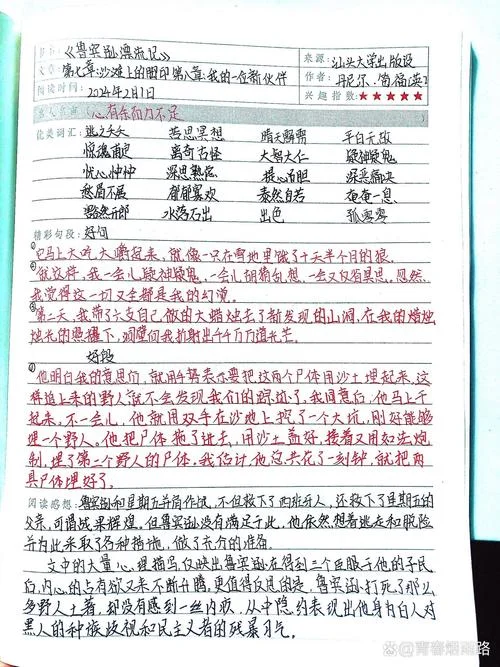 书名:《鲁宾逊漂流记》 来源:汕头大学出版设
文章:第七章:沙滩上的脚印 第八章:我的一位新伙伴 作者:丹尼尔·笛福(英)
阅读时间:2024年2月1日 兴趣指数:★★★★★
名人名言(心有余而力不足)
优美词汇:逃之夭夭 苦思冥想 晴天霹雳 平白无故
惊魂甫定 离奇古怪 大智大仁 疑神疑鬼
忧心忡忡 深思熟虑 提心吊胆 深恶痛決
愁眉不展 郁郁寡欢 泰然自若 奄奄一息
豁然开郎 水落石出 出色 孤零零
精彩句段:好句
①只马上大吃大嚼起来,就像一只在雪地里饿了十天半个月的狼。
②就这样,我一会儿疑神疑鬼,一会儿胡猜乱想,一会又反省具思,忽然,
我觉得这一切又全都是我的幻觉。
③第二天,我带了六支自己做的大蜡烛去了新发现的山洞,在我的蜡烛
烛光的照耀下,洞壁向我折射出千千万万道光芒。
好段
①他明白我的意思们,就用手势表示要把这两个尸体用沙土埋起来,这
样追上来的野人就不会发现我们的踪迹了。我同意后,他马上干
起来,不一会儿,他就用双手在沙地上挖了一个大坑,刚好能够
埋一个野人。他把尸体拖了进去,用沙土盖好,接着又用如法炮
制,埋了第二个野人的尸体。我估计,他总共花了一刻钟,就把两
具尸体埋好了。
阅读感想:鲁宾逊和星期五并肩作战,不但救下了西班牙人,还救下了星期五的
父亲,可谓战果辉煌。但鲁宾逊没有满足于此,他依然想着逃走和脱险
并为此采取了各种措施,做了充分的准备。
文中的大量心理描写仅映出鲁宾逊在得到三个臣服于他的子民
后,内心的占有欲又来不断升腾,更值得反思的是,鲁宾逊打死了那么
多野人土著,却没有感到一丝内疚,从中隐约表现出他身为白人对
黑人的种族歧视和民主义者的残暴习气。
@青春烟雨路